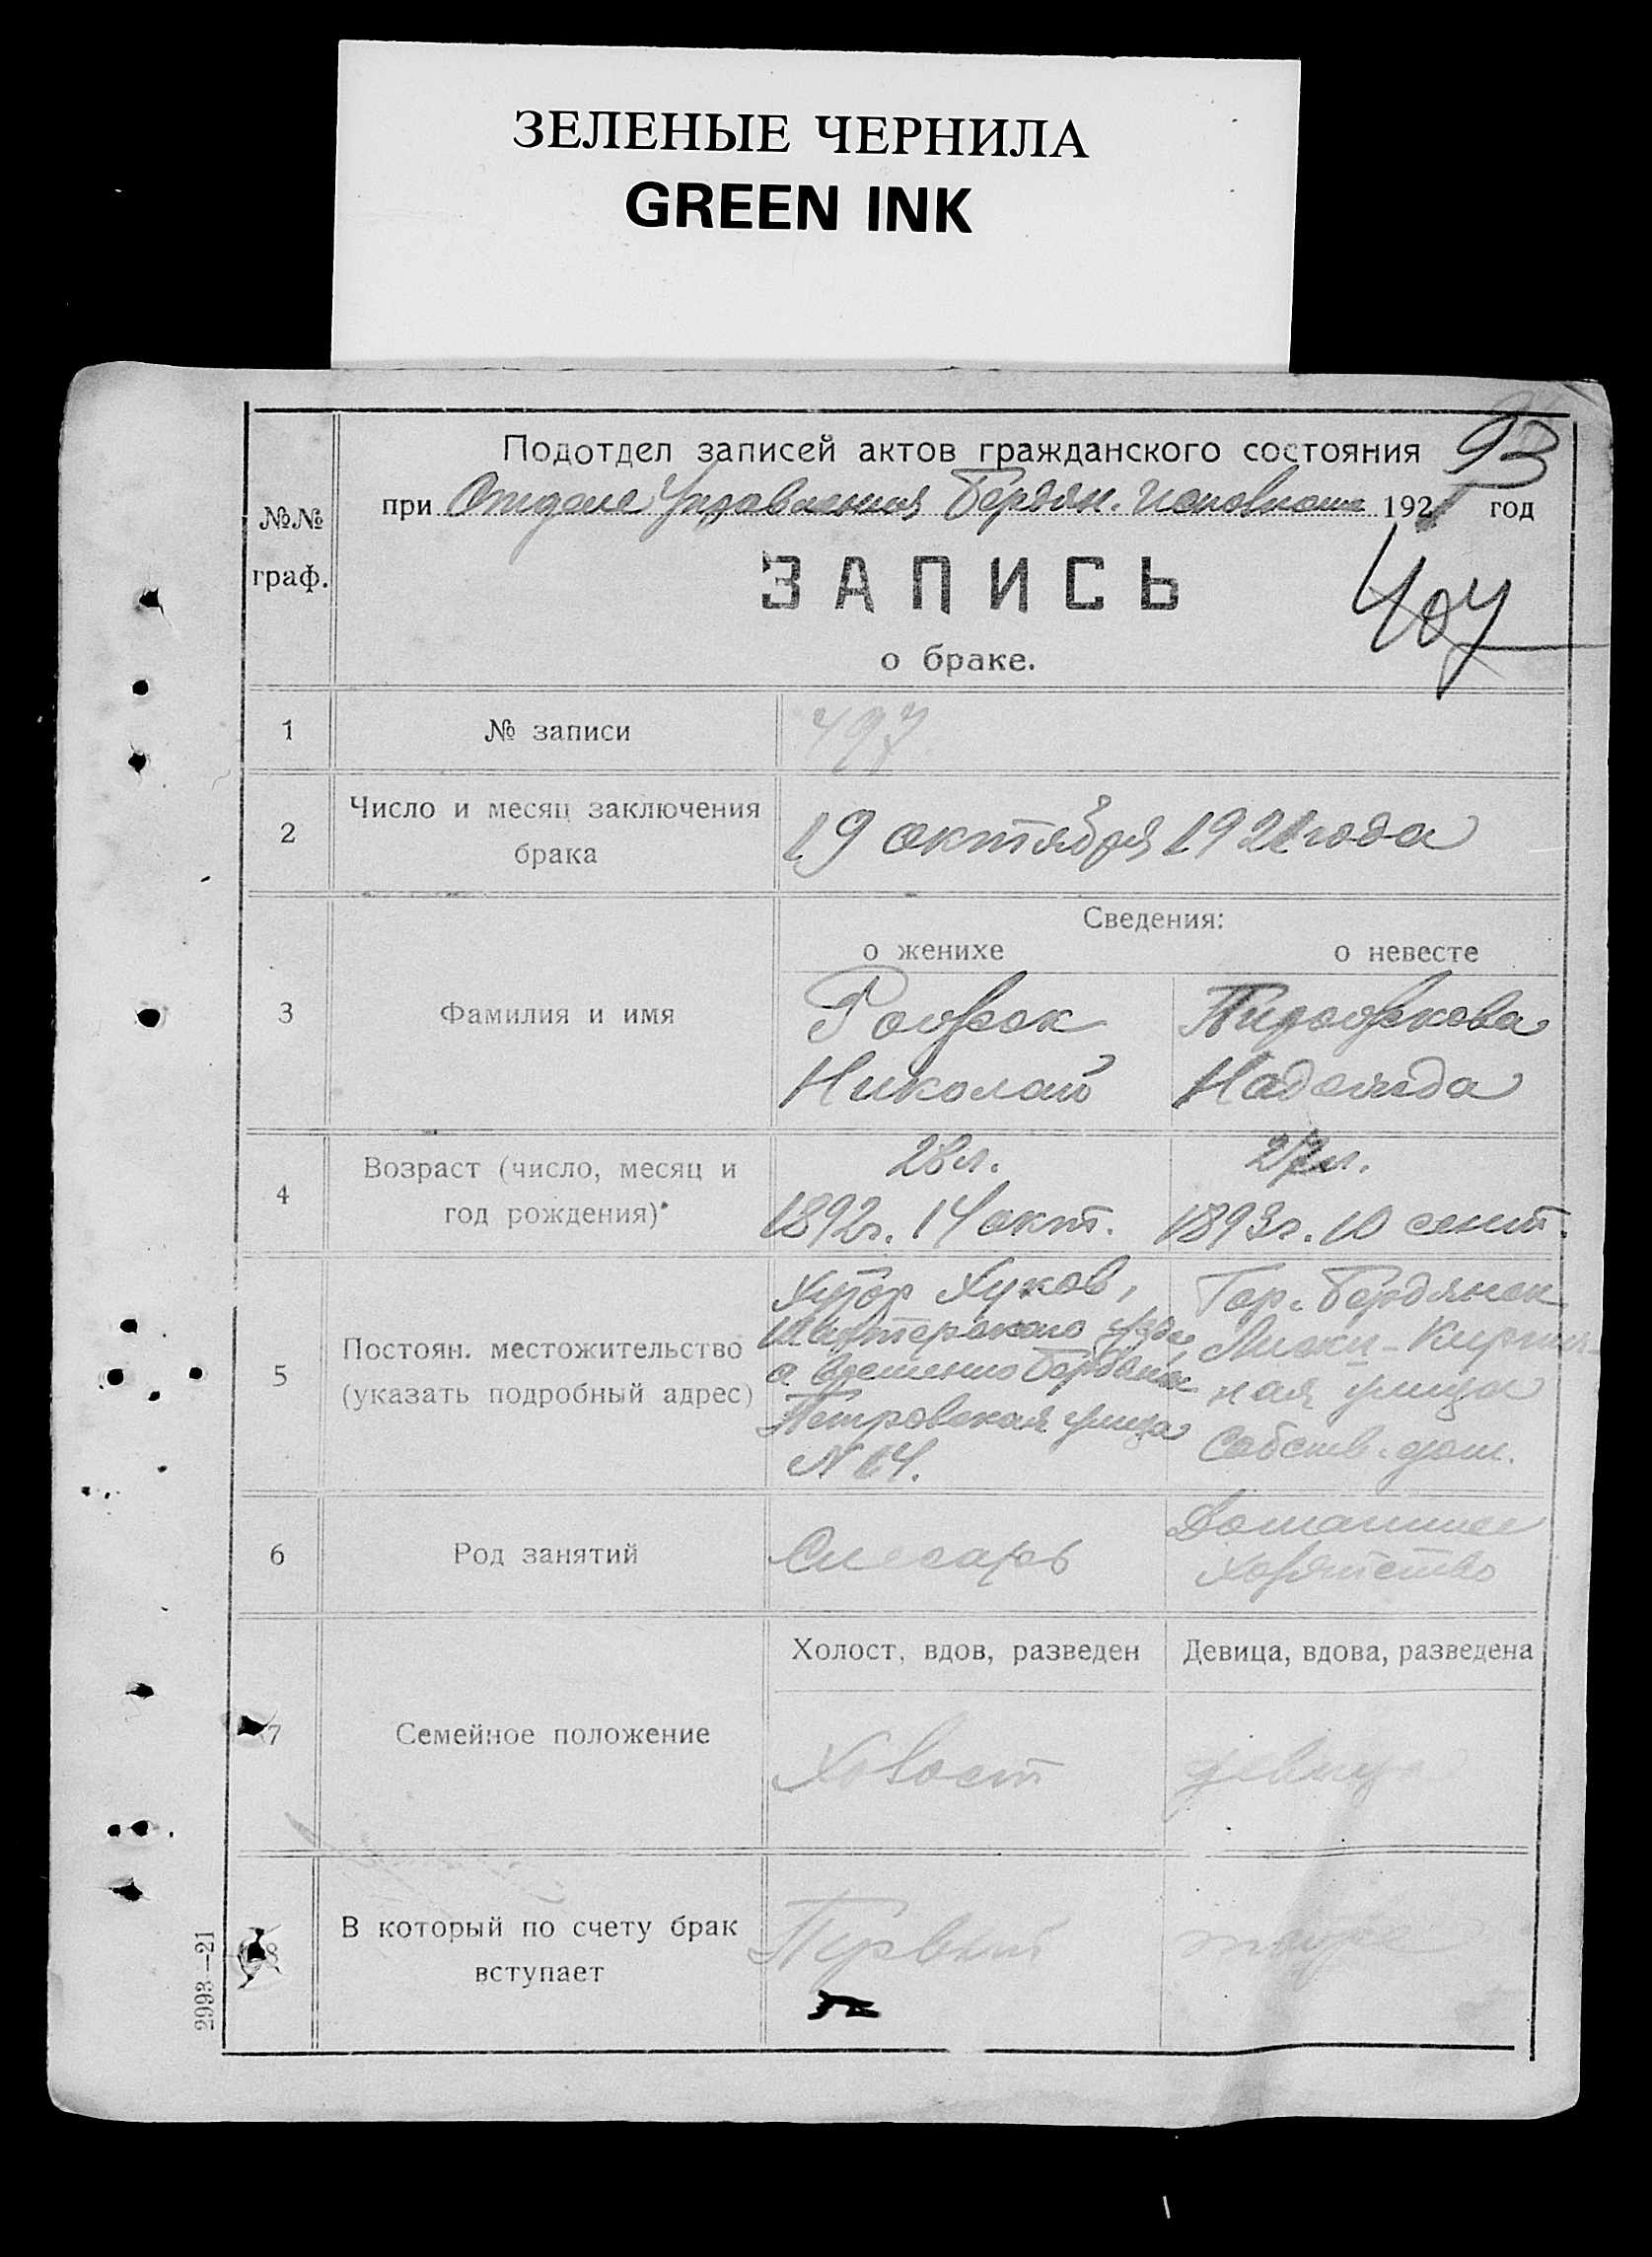 ЗЕЛЕНЫЕ ЧЕРНИЛА
GREEN INK
93
Подотдел записей актов гражданского состояния
при Отделе Управления Бердян. Исполкома 1921 год
№№ граф.
ЗАПИСЬ
о браке.
1 № записи 497
2 Число и месяц заключения брака
19 октября 1921 года
Сведения:
о женихе о невесте
3 Фамилия и имя
Рожок
Николай
Пирожкова
Надежда
4 Возраст (число, месяц и год рождения)*
28 л. 27 л.
1892 г. 14 окт. 1893 г. 10 сент.
5 Постоян. местожительство
(указать подробный адрес)
Хутор Хуков,
а временно
Петровская улица
№ 64.
Гор. Бердянск
Лиски-
ная улица
Собств. дом.
6 Род занятий
Слесарь
Домашнее
хозяйство
Холост, вдов, разведен Девица, вдова, разведена
7 Семейное положение
Холост девица
8 В который по счету брак
вступает
Первый
2993—21